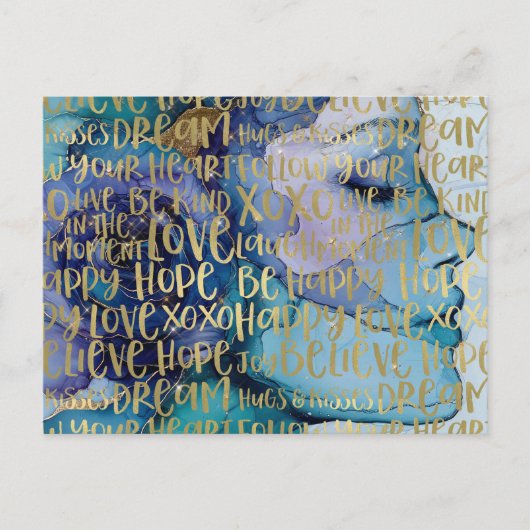 BELIEVE HOPE JOY BELIEVE HOPE
KISSES DREAM HUGS & KISSES DREAM
YOUR HEART FOLLOW YOUR HEART
XO LIVE BE KIND XOXO LIVE BE KIND
IN THE MOMENT LOVE LAUGH IN THE MOMENT LOVE
HAPPY HOPE BE HAPPY HOPE
LOVE XOXO HAPPY LOVE XOXO
BELIEVE HOPE JOY BELIEVE HOPE
KISSES DREAM HUGS & KISSES DREAM
YOUR HEART FOLLOW YOUR HEART